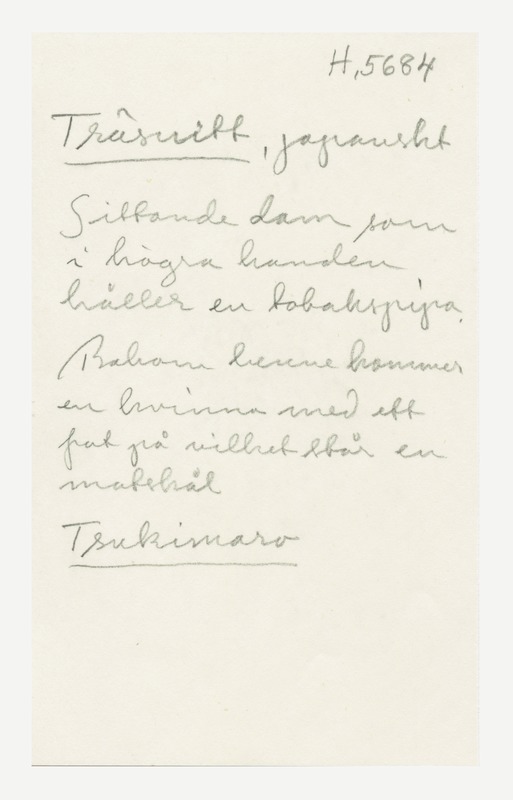 H,5684
Träsnitt, japanskt
Sittande dam som
i högra handen
håller en tobakspipa.
Bakom henne kommer
en kvinna med ett
fat på vilket står en
matskål
Tsukimaro